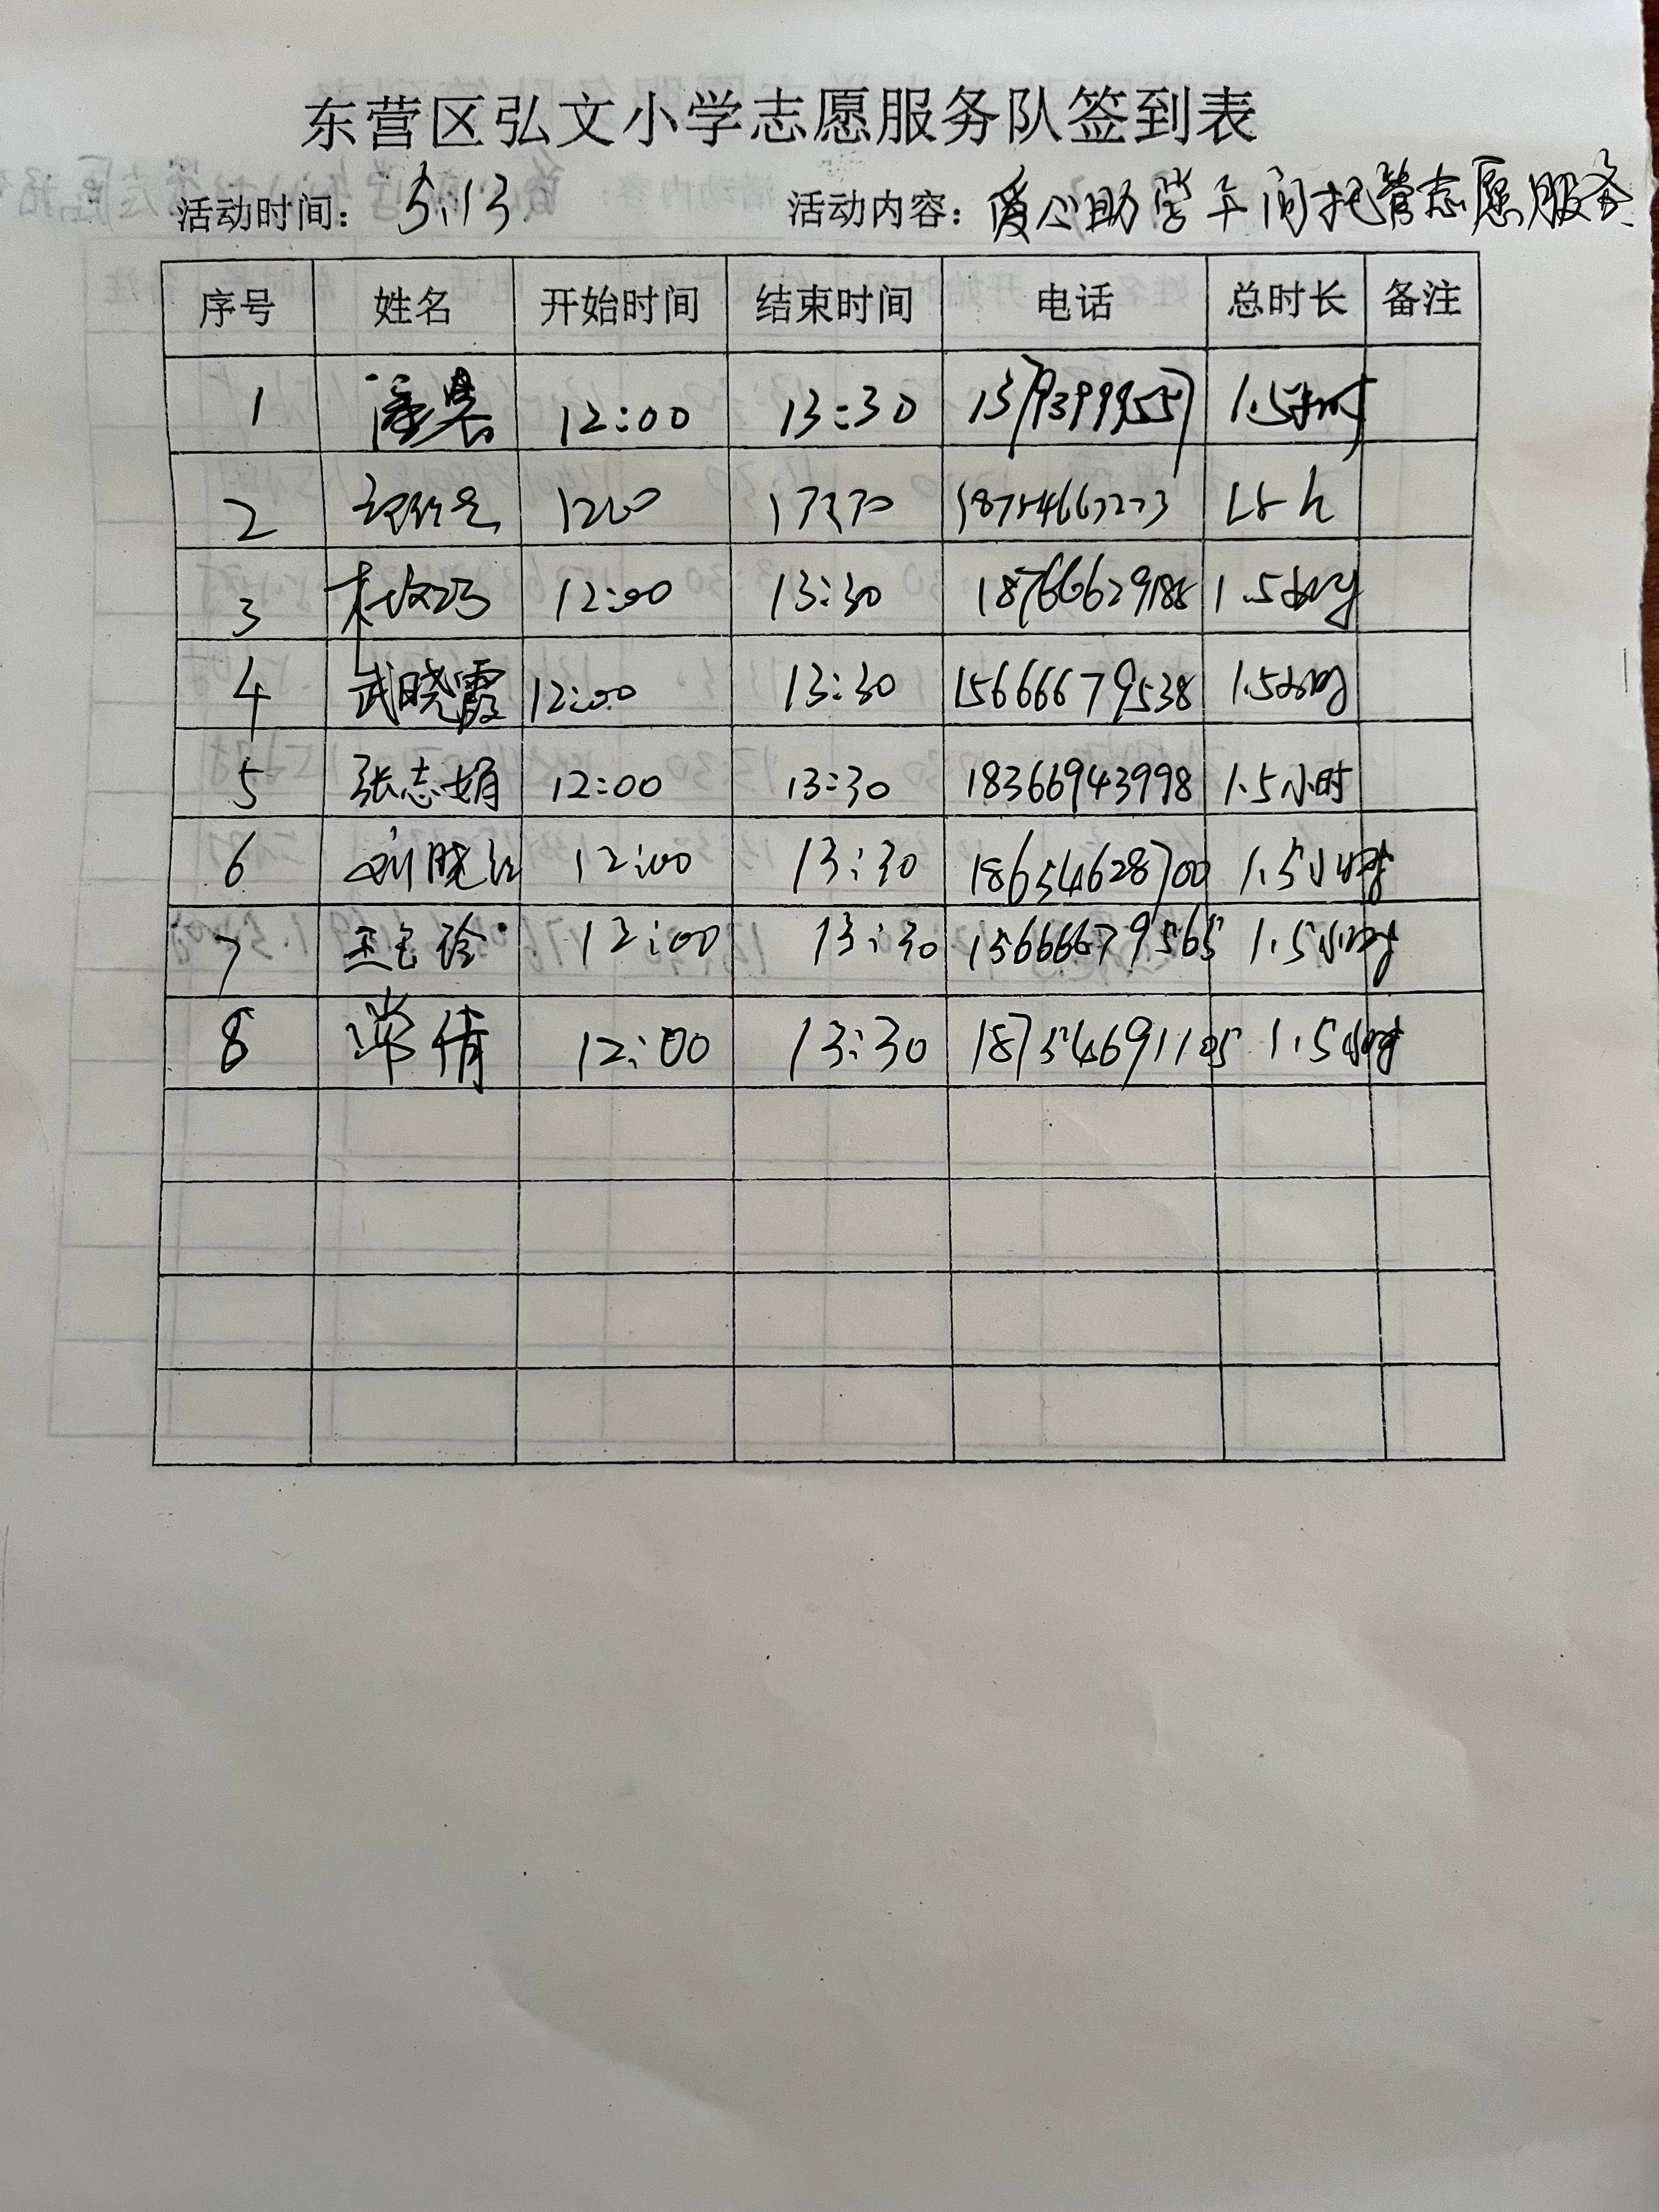 东营区弘文小学志愿服务队签到表
活动时间： 5.13 活动内容：爱心助学午间托管志愿服务
序号 姓名 开始时间 结束时间 电话 总时长 备注
1 12:00 13:30 1.5小时
2 1200
3 12:00 13:30 18766629188 1.5小时
4 武晓霞 12:00 13:30 15666679538 1.5小时
5 张志娟 12:00 13:30 18366943998 1.5小时
6 刘晓红 12:00 13:30 18654628700 1.5小时
7 12:00 13:30 15666679565 1.5小时
8 常倩 12:00 13:30 18754691105 1.5小时